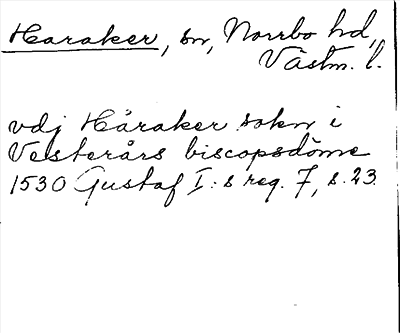 Haraker, sn, Norrbo hd,
Västm. l.
vdj Håraker sokn i
Vesterårs biscopsdöme
1530 Gustaf I:s reg. 7, s. 23.